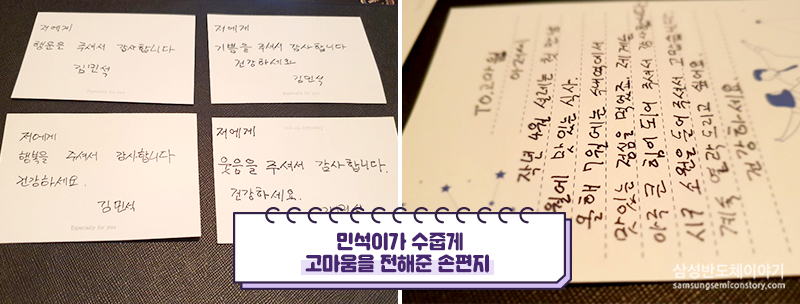 저에게
행운은 주셔서 감사합니다
김민석
Especially for you
저에게
기쁨을 주셔서 감사합니다
건강하세요
김민석
Especially for you
저에게
행복을 주셔서 감사합니다
건강하세요.
김민석
Especially for you
저에게
웃음을 주셔서 감사합니다.
건강하세요.
TO.고마울
작년 4월 설레는 첫 만남
월에 맛있는 식사.
올해 7월에는 수내역에서
맛있는 점심을 먹었죠. 제게는
아주 큰 힘이 되어 주셔서 감사합니다
시구 소원을 들어주셔서 고맙습니다
계속 연락 드리고 싶어요.
건강하세요.
민석이가 수줍게
고마움을 전해준 손편지
삼성반도체이야기
samsungsemiconstory.com